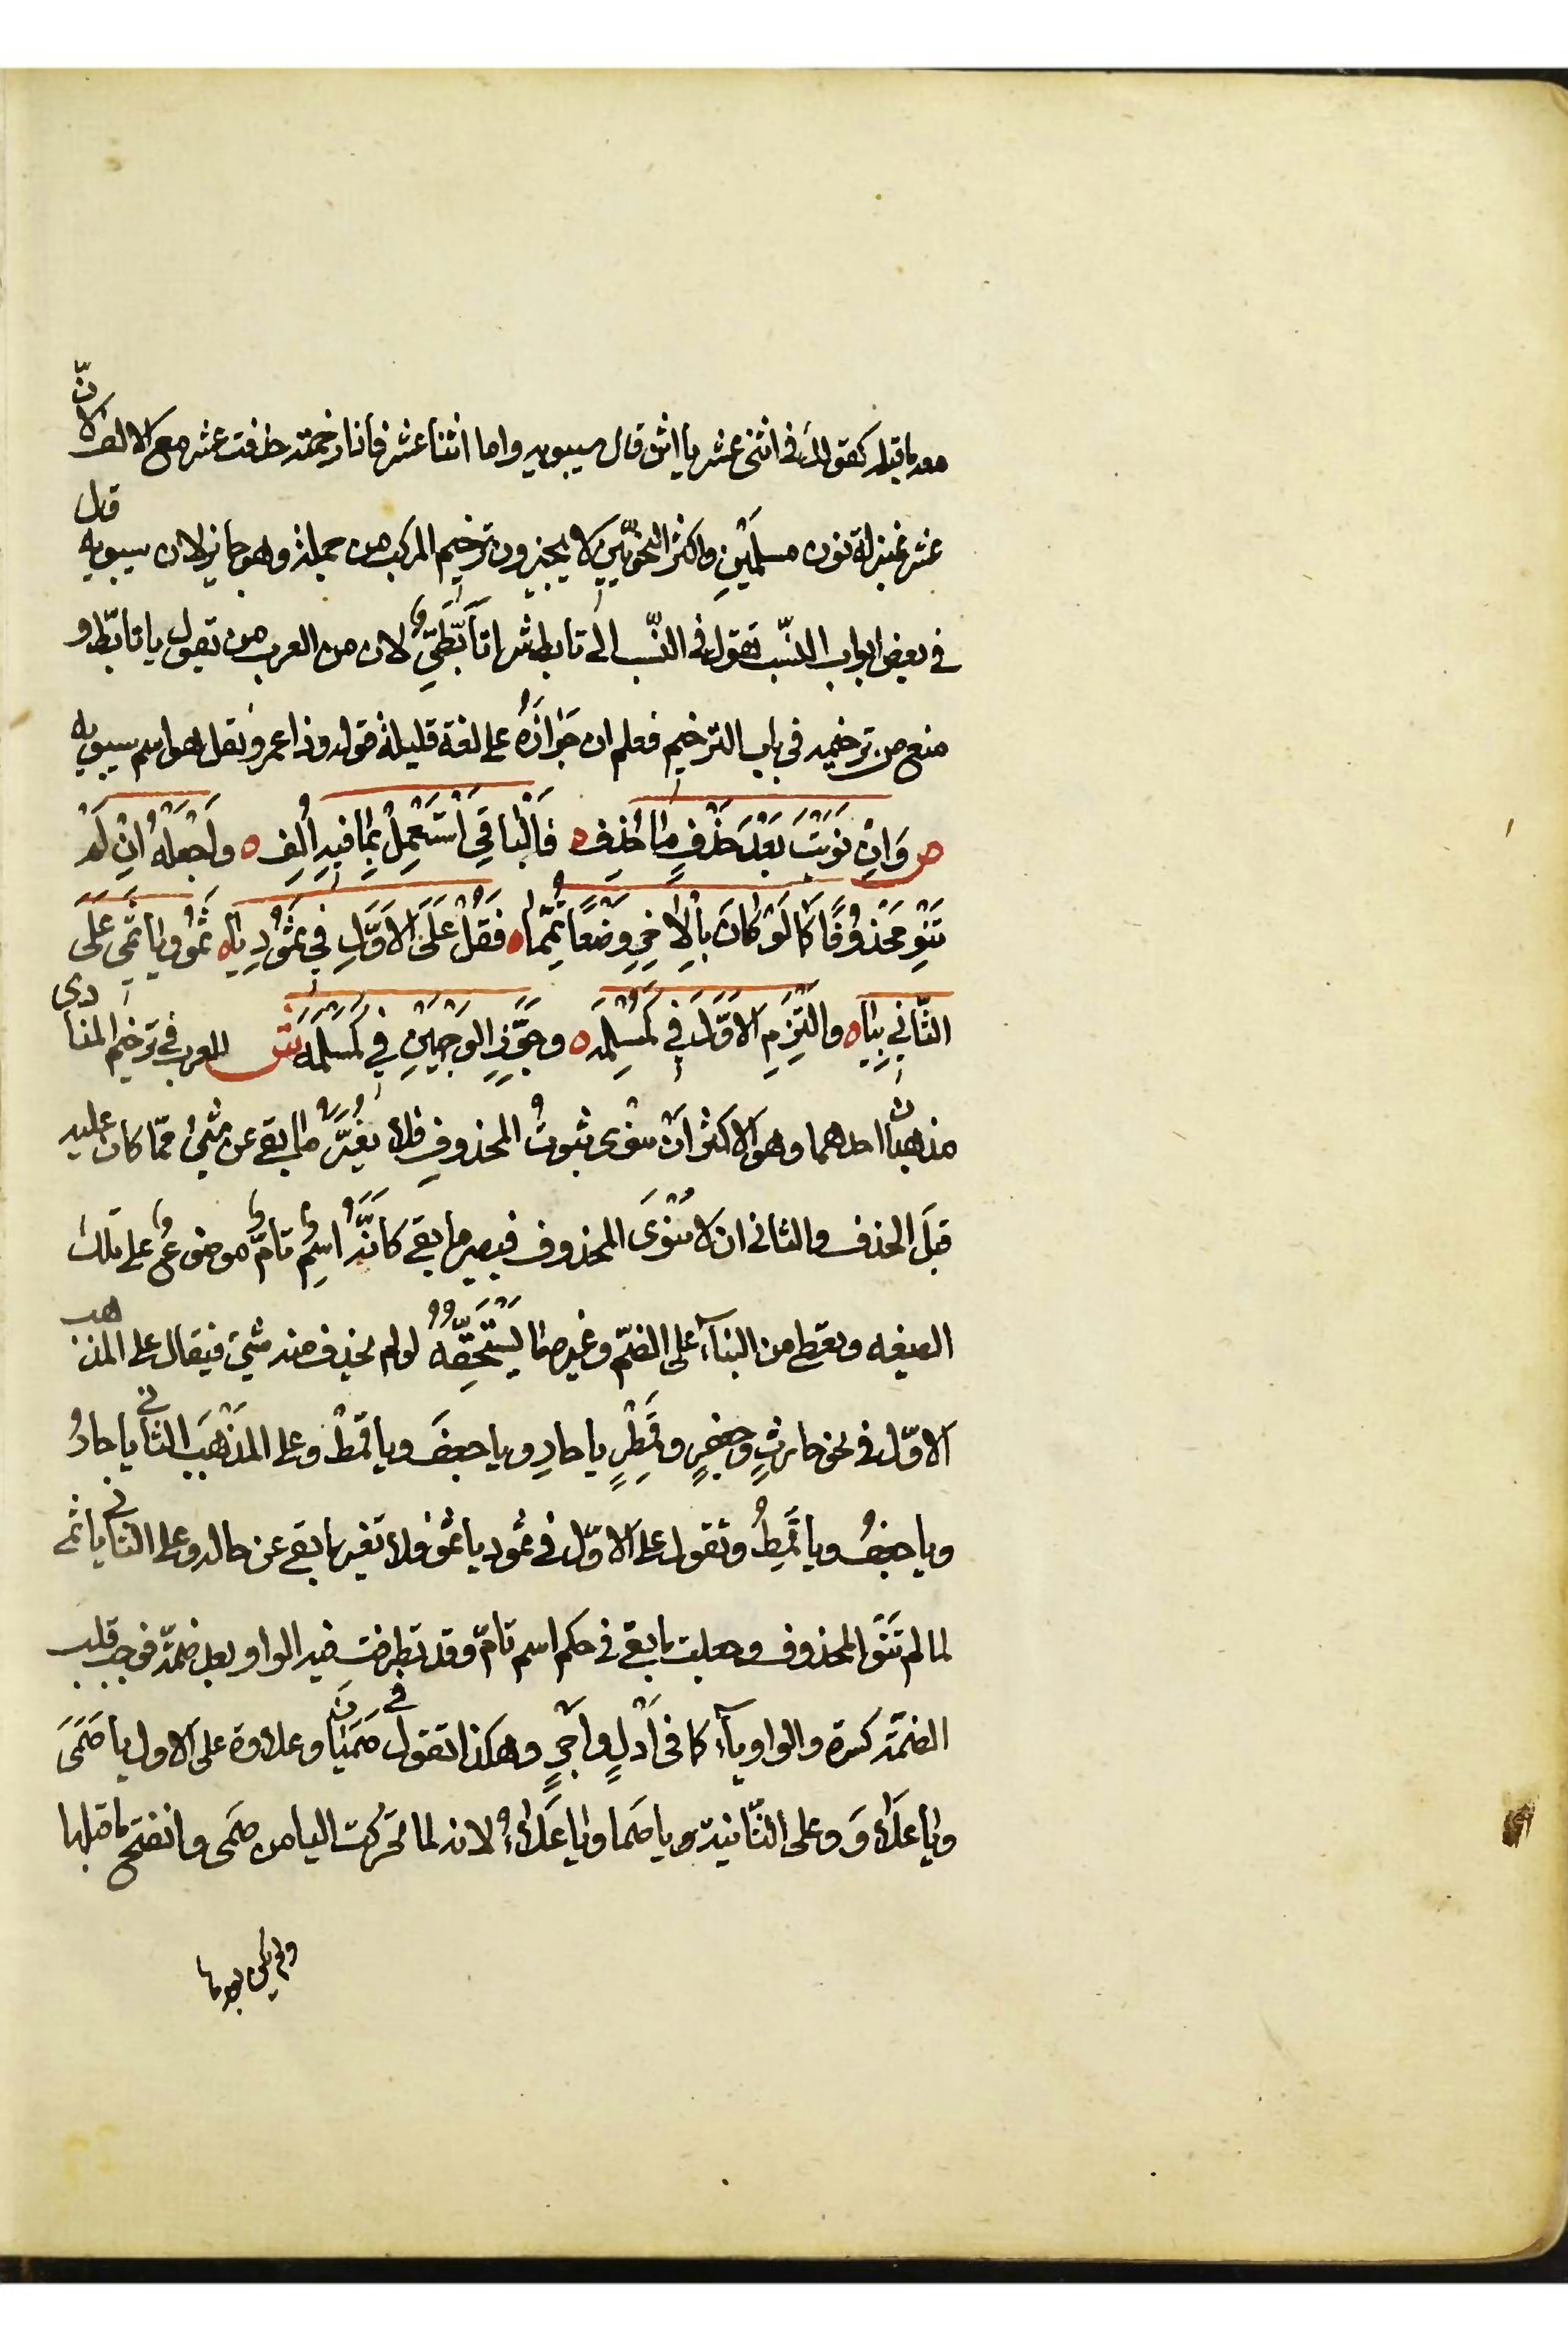 معه ما قبله كقولك في اثنى عشر يا اثن قال سيبويه واما اثنا عشر فاذا رخمته حذفت عشر مع الالف لانّ
عشر بمنزلة نون مسلمَيْنِ واكثر النحويّين لا يجيزون ترخيم المركب من جملة وهو جايز لان سيبويه قال
في بعض ابواب النسب تقول في النسب الى تابط شرا تَأَبَّطِيّ لان من العرب من يقول يا تابّط و
منع من ترخيمه في باب الترخيم فعلم ان جَوَازَهُ على لغة قليلة قوله وذا عمرو نقل هو اسم سيبويه
ص وَاِنْ نَوَيْتَ بَعْدَ حَذْفٍ مَا حُذِفْ ه فَالْبَاقِي اسْتَعْمِلْ بِمَا فِيهِ اُلِفْ ه وَاجْعَلْهُ اِنْ لَمْ
تَنْوِ مَحْذُوْفًا كَمَا لَوْ كَانَ بِالْاٰخِرِ وَضْعًا تُمِّمَا ه فَقُلْ عَلَى الْاَوَّلِ فِي ثَمُوْدَ يَا ه ثَمُو وَيَا ثَمِي عَلَى
الثّانِي بِيَا ه وَالْتَزِمِ الْاَوَّلَ فِي كَمُسْلِمَه ه وجَوِّزِ الْوَجْهَيْنِ فِي كَمَسْلَمَه ش للعرب في ترخيم المنادى
مذهبان احدهما وهو الاكثر ان ينوى ثبوتُ المحذوفِ فلا يُغيَّرُ ما بقى عن شئ ممّا كان عليه
قبلَ الحذف والثانى ان لا يُنْوَى المحذوف فيصير ما بقى كانَّهُ اسمٌ تامٌّ موضوعٌ على تلك
الصيغه ويعطى من البنآء على الضمّ وغيره ما يَسْتَحِقُّهُ لو لم يحذف منه شئ فيقال على المذهب
الاوّل في نحو حارثٍ وجعفرٍ وقِمَطْرٍ يا حارِ ويا جعفَ ويا قمطْ وعلى المذْهَبِ الثانى يا حارُ
ويا جعفُ ويا قِمَطُ وتقول على الاوّل في ثمود يا ثمو فلا تغير ما بقى عن حاله وعلى الثانى يا ثمى
لما لم تَنْوِ المحذوف وجعلت ما بقى في حكم اسم تامّ وقد تطرفت فيه الواو بعد ضمّة فوجب قلب
الضمّة كسرة والواو يآء كما في اَدْلٍ واَجْرٍ وهكذا تقول في صَمَيَان وعلاوة على الاول يا صَمَىَ
ويا علاوَ وعلى الثّانية ويا صَما ويا علاءُ لانه لما تحرّكت اليا من صَمى وانفتح ما قبلها
ولم يكن بعدها